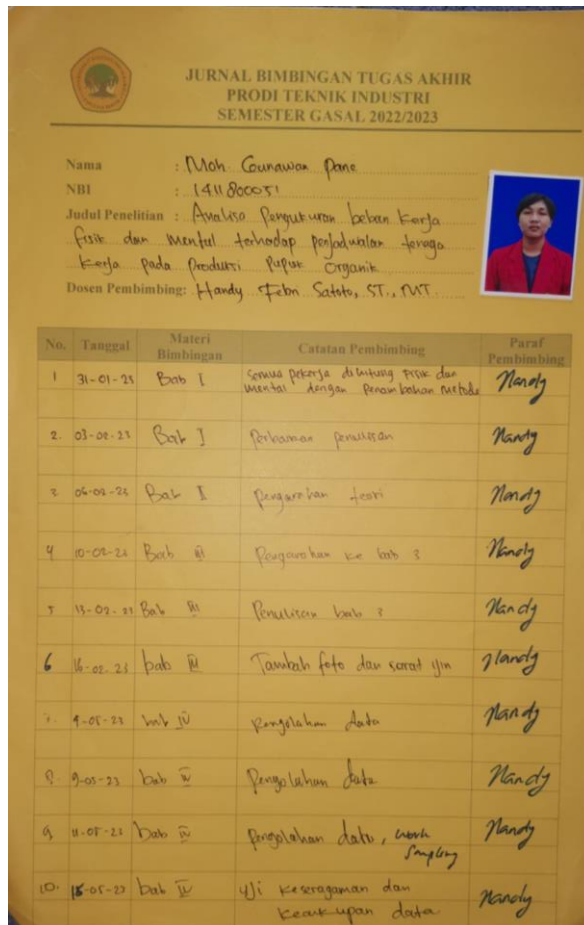 JURNAL BIMBINGAN TUGAS AKHIR
PRODI TEKNIK INDUSTRI
SEMESTER GASAL 2022/2023
Nama : Moh. Gunawan Pane
NBI : 1411800051
Judul Penelitian : Analisa Pengukuran beban kerja
fisik dan mental terhadap penjadwalan tenaga
kerja pada Produksi Pupuk Organik
Dosen Pembimbing: Handy Febri Satoto, ST., MT.
No. Tanggal Materi Bimbingan Catatan Pembimbing Paraf Pembimbing
1 31-01-23 Bab I Semua pekerja dihitung fisik dan
mental dengan Penambahan metode Handy
2. 03-02-23 Bab I Perbaikan penulisan Handy
3 06-02-23 Bab II Pengarahan teori Handy
4 10-02-23 Bab III Pengarahan ke bab 3 Handy
5 13-02-23 Bab III Penulisan bab 3 Handy
6 16-02-23 bab III Tambah foto dan surat Handy
7. 4-05-23 bab IV Pengolahan data Handy
8. 9-05-23 bab IV Pengolahan data Handy
9 11-05-23 bab IV pengolahan data, work
Sampling Handy
10. 15-05-23 bab IV Uji keseragaman dan
kecukupan data Handy